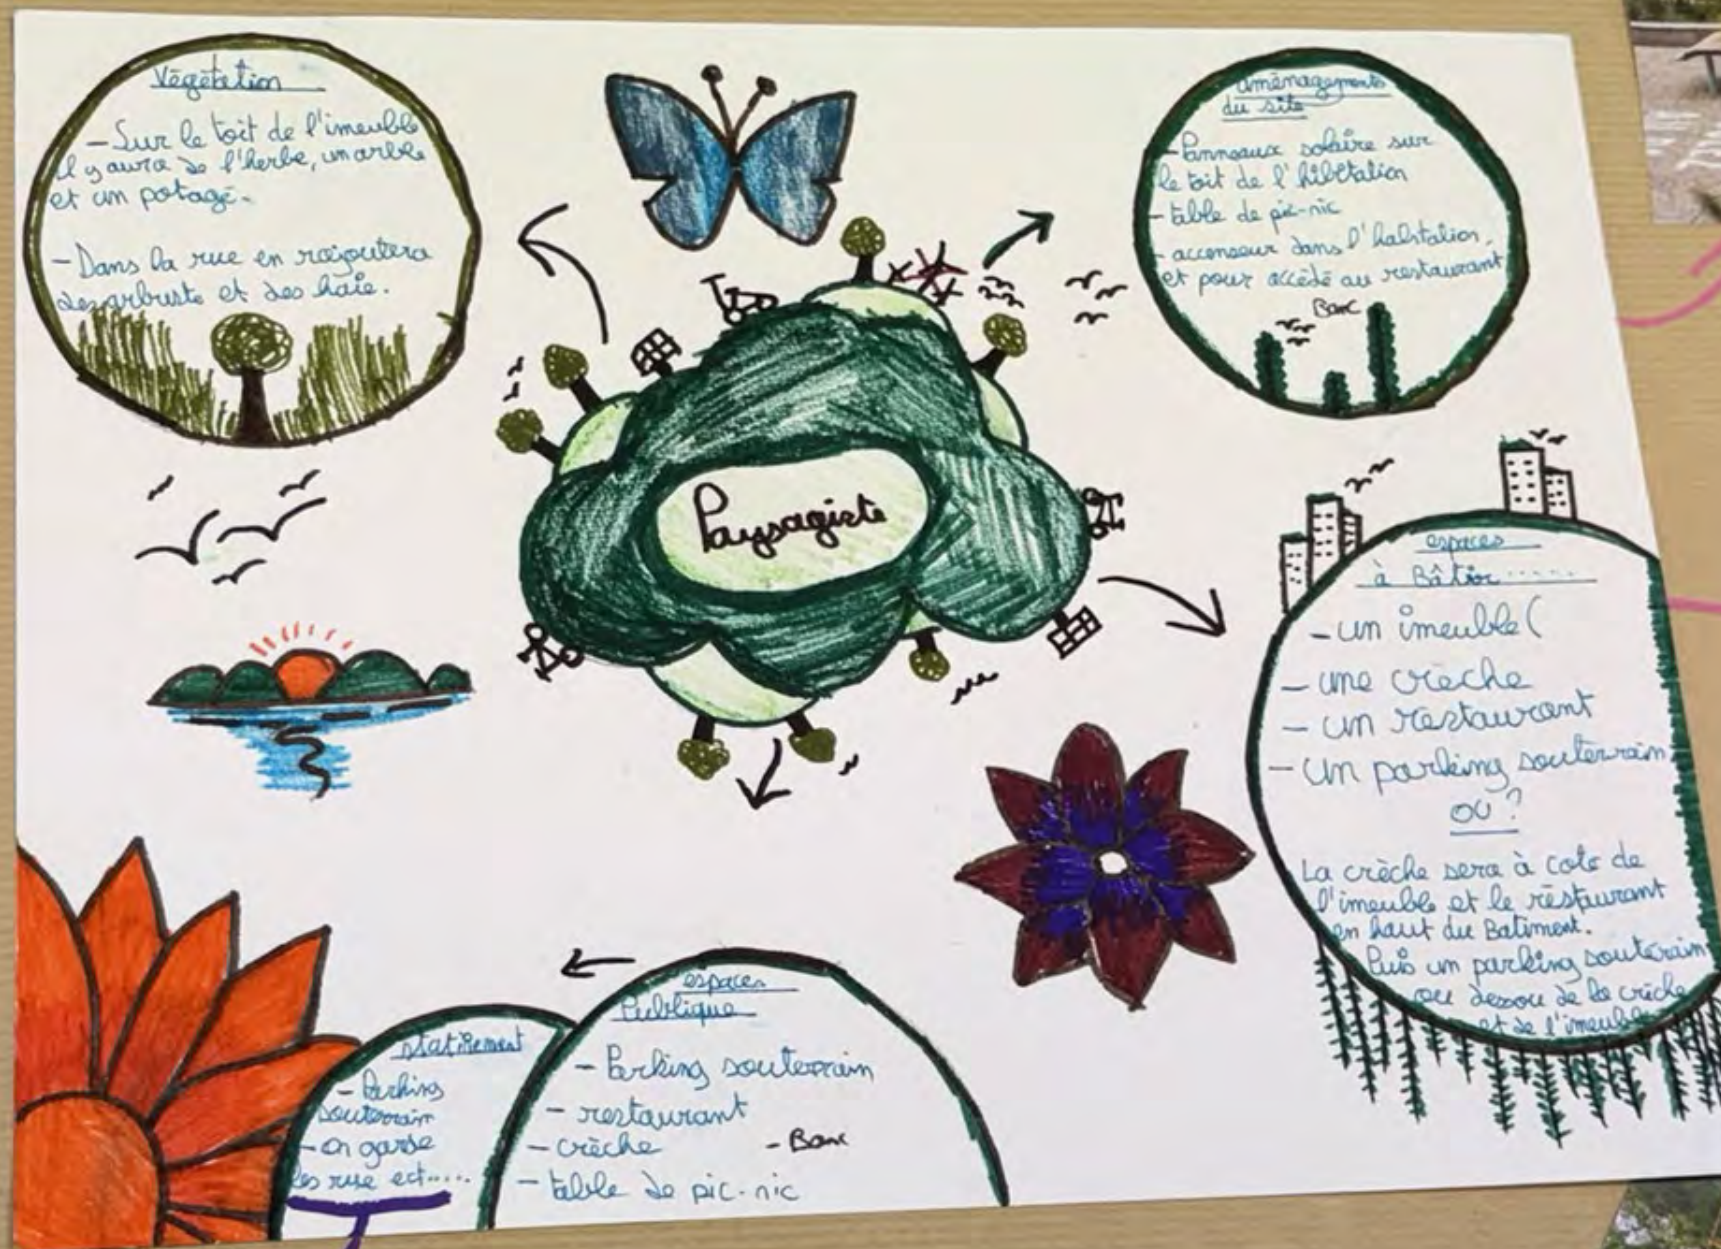 Végétation
- Sur le toit de l'imeuble
il y aura de l'herbe, un arbre
et un potagé.
- Dans la rue en rajoutera
des arbuste et des haie.
aménagements
du site
- Panneaux solaire sur
le toit de l'hibitation
- table de pic-nic
- accenseur dans l'habitation,
et pour accédé au restaurant
Banc
Paysagiste
espaces
à Bâtir ......
- un imeuble (
- une crèche
- un restaurant
- un parking souterrain
où ?
La crèche sera à coté de
l'imeuble et le réstaurant
en haut du Batiment.
Puis un parking souterain
au dessou de la crèche
et de l'imeuble
statinement
- Parking
souterrain
- on garde
les rue ect.....
espaces
Publique
- Parking souterrain
- restaurant
- crèche - Banc
- table de pic-nic